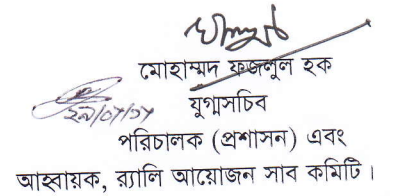 মোহাম্মদ ফজলুল হক
যুগ্মসচিব
পরিচালক (প্রশাসন) এবং
আহবায়ক, র‍্যালি আয়োজন সাব কমিটি।